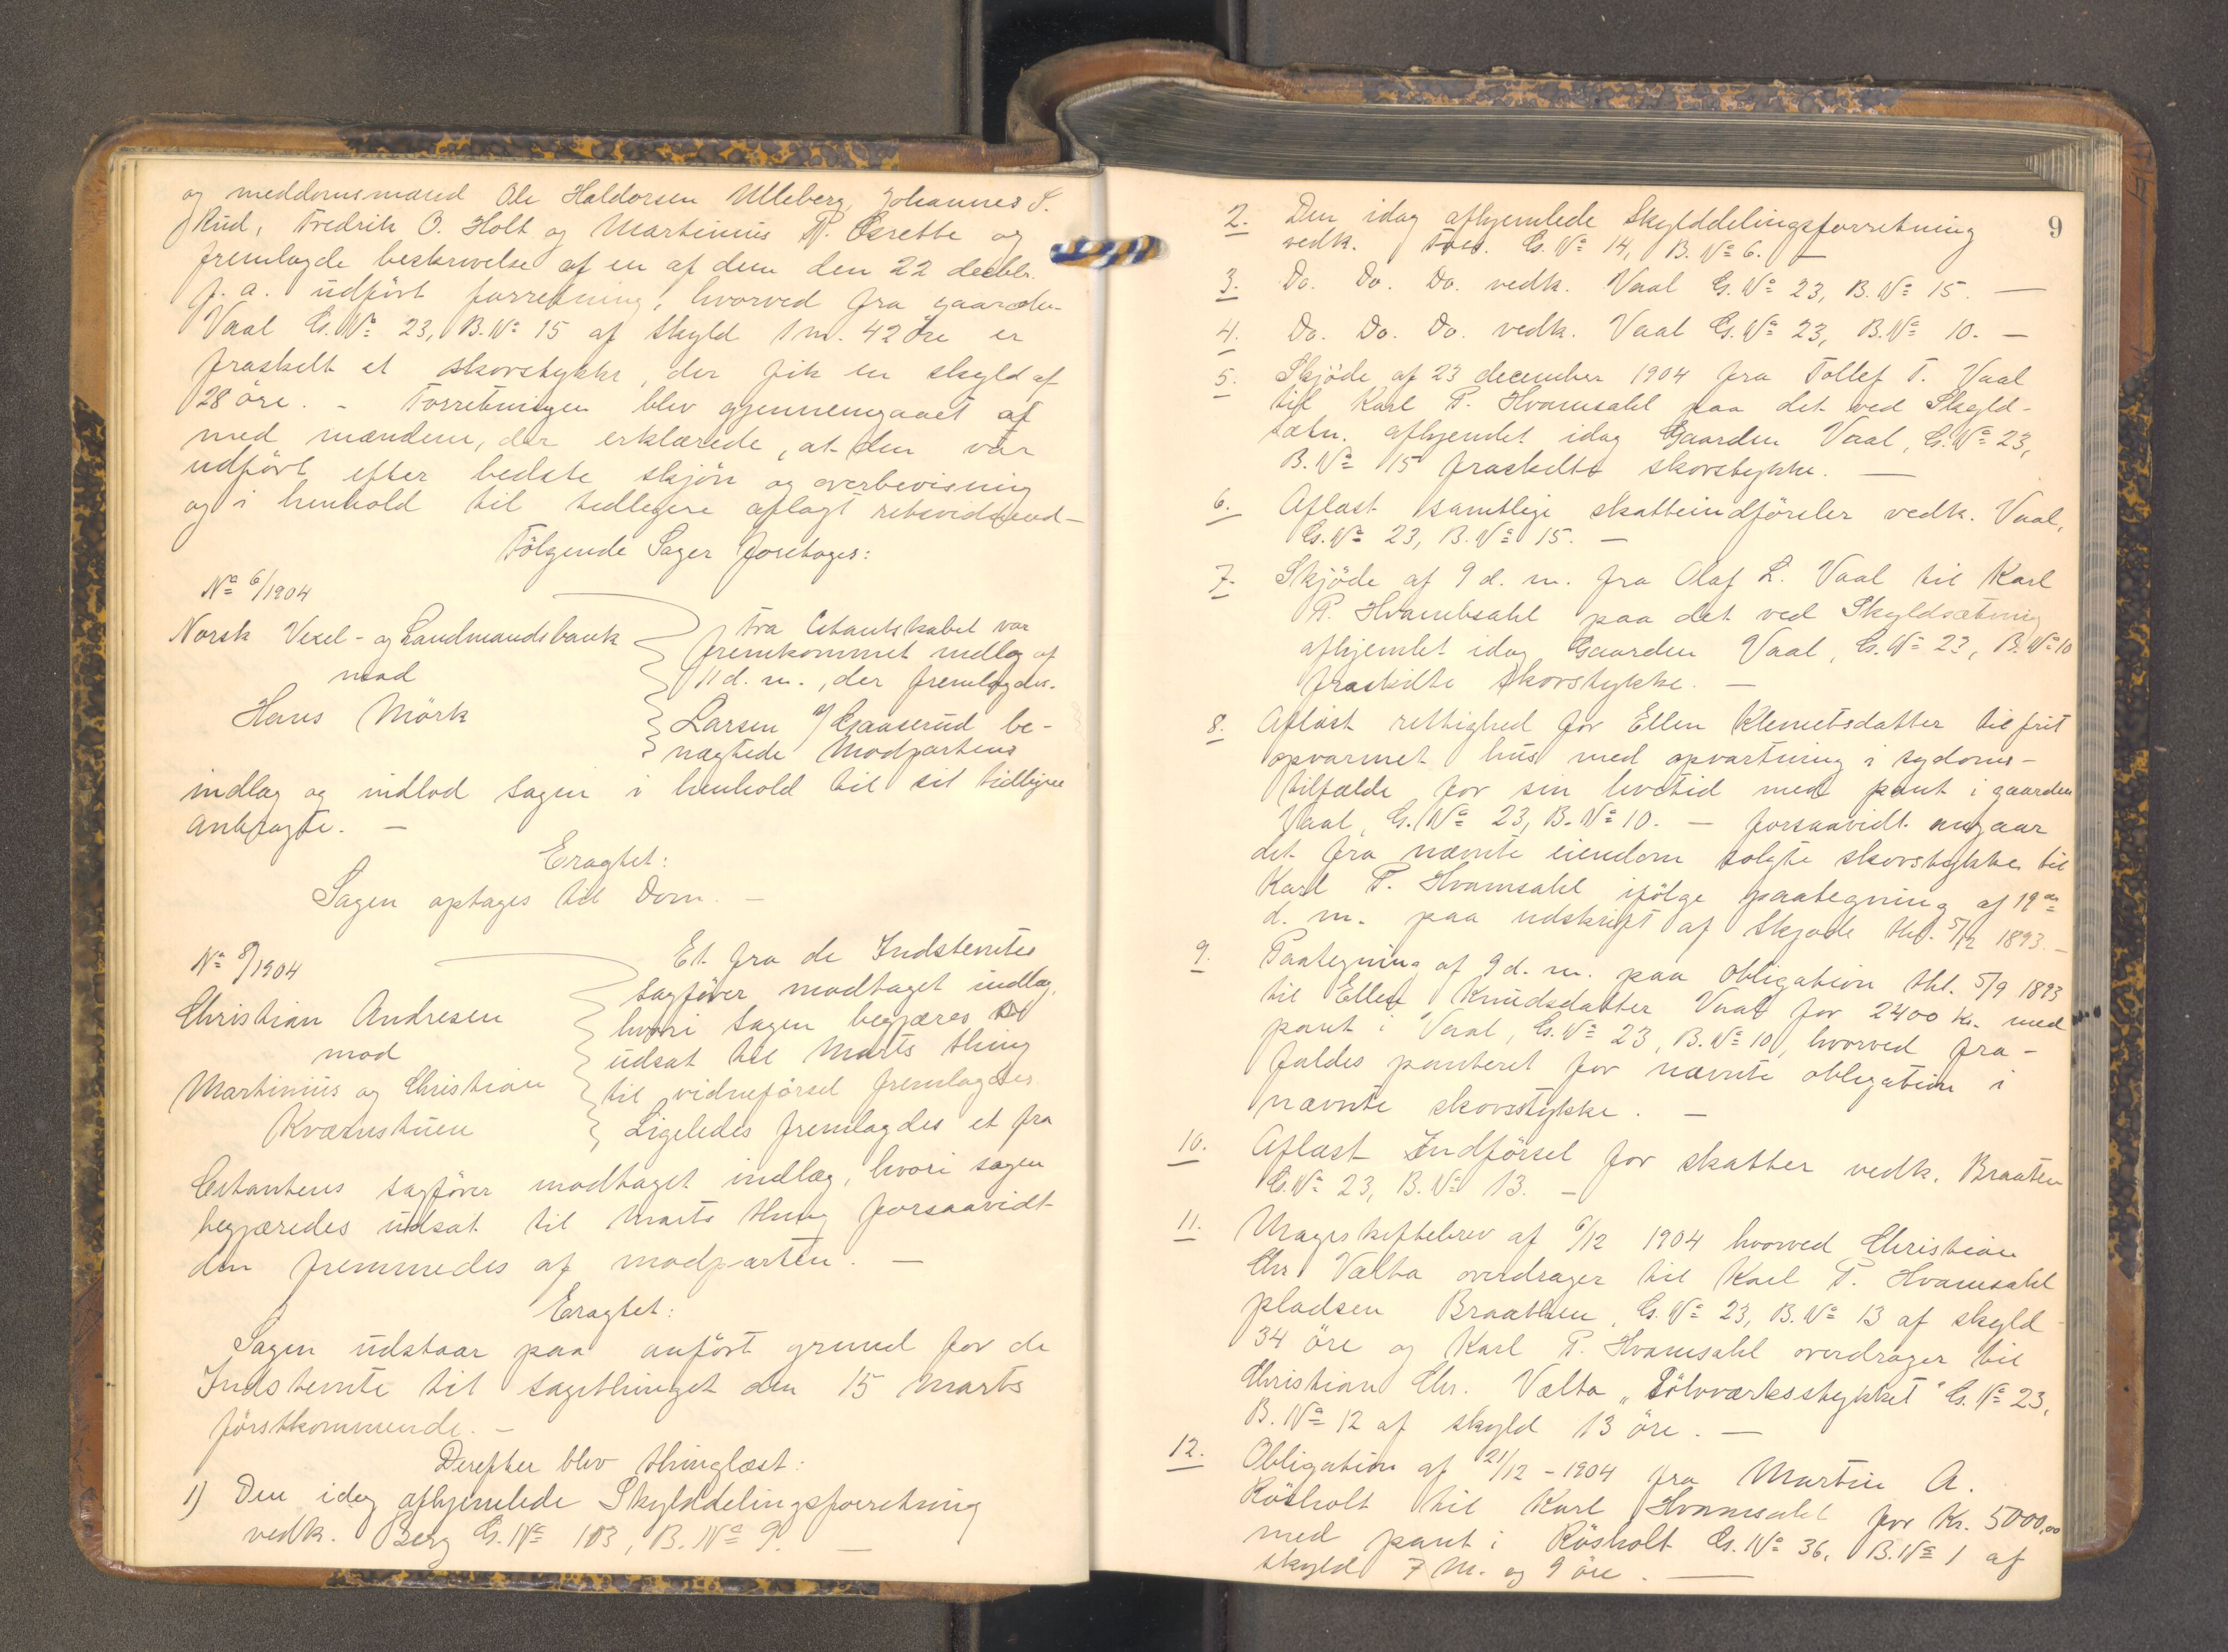 og meddomsmænd Ole Haldorsen Ulleberg, Johannes S.
Rud, Fredrik O. Holt og Martinius P. og
fremlagde beskrivelse af en af dem den 22 decbr.
f. a. udført forretning, hvorved fra gaarden
Vaal G. No 23, B. No 15 af skyld 1 m. 42 øre er
fraskilt et skovstykke, der fik en skyld af
28 øre. - Forretningen blev gjennemgaaet af
med mændene, der erklærede, at den var
udført efter bedste skjøn og overbevisning
og i henhold til tidligere aflagt
Følgende Sager foretages:
No 6/1904
Norsk Vexel- og Landmandsbank
mod
Hans Mörk
Fra Citantskabet var
fremkommet indlæg af
11 d. m., der fremlagdes.
Larsen Gaaserud be-
nægtede Modpartens
indlæg og indlod sagen i henhold til sit tidligere
anbragte. -
Eragtet:
Sagen optages til Dom. -
No 8/1904
Christian Andresen
mod
Martinius og Christian
Kværnstuen
Et fra de Indstevntes
sagfører modtaget indlæg,
hvori sagen begjæres
udsat til Marts thing
til vidneførsel fremlagdes.
Ligeledes fremlagdes et fra
Citantens sagfører modtaget indlæg, hvori sagen
begjæredes udsat til marts thing forsaavidt
den fremmedes af modparten. -
Eragtet:
Sagen udstaar paa anført grund for de
Indstevnte til sagethinget den 15 Marts
førstkommende. -
Derefter blev thinglæst:
1) Den idag afhjemlede Skylddelingsforretning
vedk. Berg G. No 103, B. No 9. -
9
2. Den idag afhjemlede Skylddelingsforretning
vedk. G. No 14, B. No 6. -
3. Do. Do. Do. vedk. Vaal G. No 23, B. No 15. -
4. Do. Do. Do. vedk. Vaal G. No 23, B. No 10. -
5. Skjöde af 23 december 1904 fra Tollef T. Vaal
til Karl P. Hvamsahl paa det ved Skyld-
sætn. afhjemlet idag Gaarden Vaal, G. No 23,
B. No 15 fraskilte skovstykke. -
6. Aflæst samtlige skatteindførsler vedk. Vaal,
G. No 23, B. No 15. -
7. Skjöde af 9 d. m. fra Olaf L. Vaal til Karl
P. Hvambsahl paa det ved Skyldsætning
afhjemlet idag Gaarden Vaal, G. No 23, B. No 10
fraskilte skovstykke. -
8. Aflæst rettighed for Ellen Klemetsdatter til frit
opvarmet hus med opvartning i sygdoms-
tilfælde for sin livstid med pant i gaarden
Vaal, G. No 23, B. No 10. - forsaavidt angaar
det fra nævnte eiendom solgte skovstykke til
Karl P. Hvamsahl ifölge paategning af 19de
d. m. paa udskrift af Skjøde thl. 5/12 1893. -
9. Paategning af 9 d. m. paa Obligation thl. 5/9 1893
til Ellen Knudsdatter Vaal for 2400 kr. med
pant i Vaal, G. No 23, B. No 10, hvorved fra-
faldes panteret for nævnte obligation i
nævnte skovstykke. -
10. Aflæst Indførsel for skatter vedk. Braaten
G. No 23, B. No 13. -
11. Mageskiftebrev af 6/12 1904 hvorved Christian
Chr. Valta overdrager til Karl P. Hvamsahl
pladsen Braathen, G. No 23, B. No 13 af skyld
34 öre og Karl P. Hvamsahl overdrager til
Christian Chr. Valta "Sölvværksstykket" G. No 23,
B. No 12 af skyld 13 öre. -
12. Obligation af 21/12 - 1904 fra Martin A.
Rösholt til Karl Hvamsahl for Kr. 5000,00
med pant i Rösholt G. No 36, B. No 1 af
skyld 7 M. og 9 öre. -